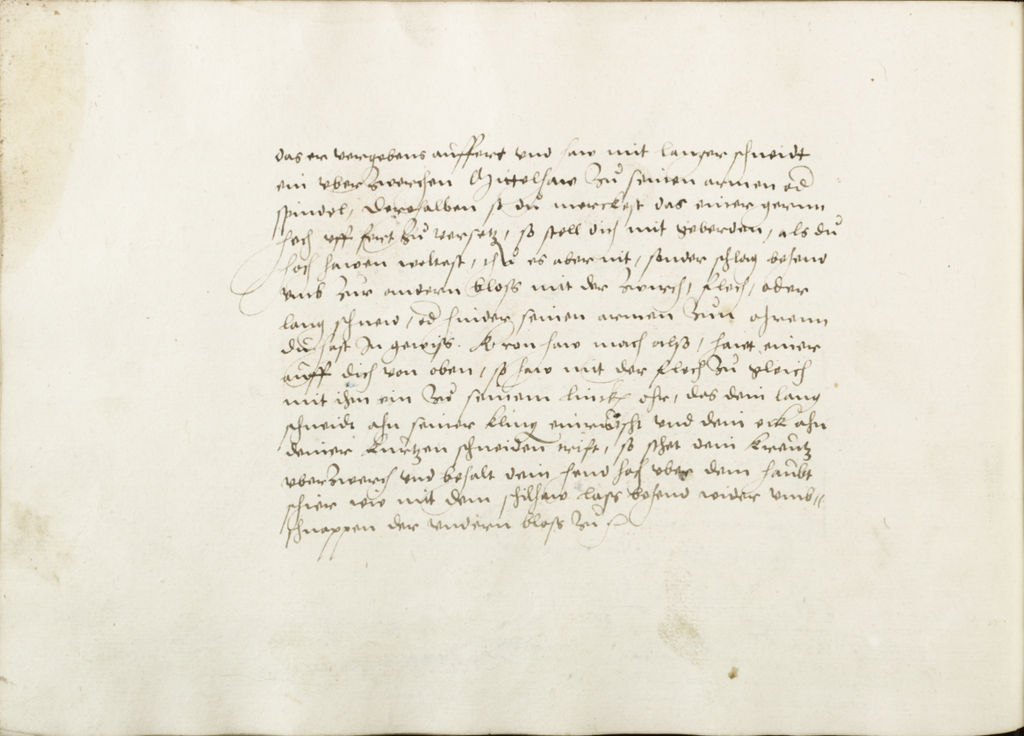 das er vergebens auffert und haw mit langer schneidt
ein uberzwerchen Mittelhaw Zu seinen armen od
spindel, Derohalben so du merckest das einer gernn
hoch uff fert zu versetz, so stell dich mit geberden, als du
hoch hawen woltest, thu es aber nit, sonder schlag behend
umb Zur andern bloss mit der Zwirch, flech, oder
lang schnew, od hinder seinen armen Zun ohrenn
du hast In gewiss. Kronhaw mach alss, hawt einer
auff dich von oben, so haw mit der flech Zu gleich
mit ihm ein Zu seinem linck ohr, das dein lang
schneidt ahn seiner kling einrüscht und dein eck ahn
deiner kurtzen schneiden trift, so schet dein kreutz
uberzwerch und behalt dein hend hoch uber dem haubt
schier wie mit dem schilhaw lass behend wider umb=
schnappen der undern bloss Zu